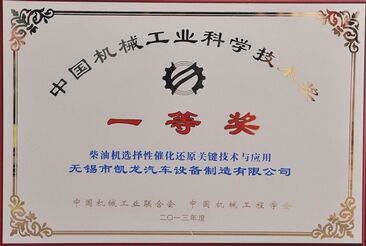 中国机械工业科学技术奖
一等奖
柴油机选择性催化还原关键技术与应用
无锡市凯龙汽车设备制造有限公司
中国机械工业联合会 中国机械工程学会
二〇一三年度